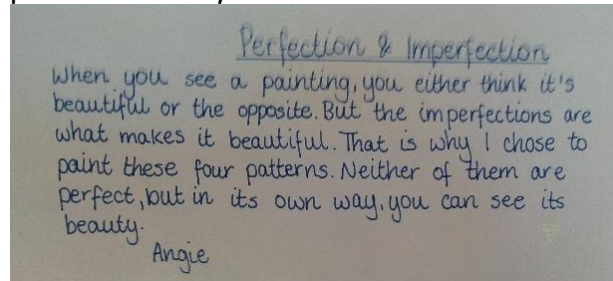 Perfection & Imperfection
When you see a painting, you either think it's
beautiful or the opposite. But the imperfections are
what makes it beautiful. That is why I chose to
paint these four patterns. Neither of them are
perfect, but in its own way, you can see its
beauty.
Angie